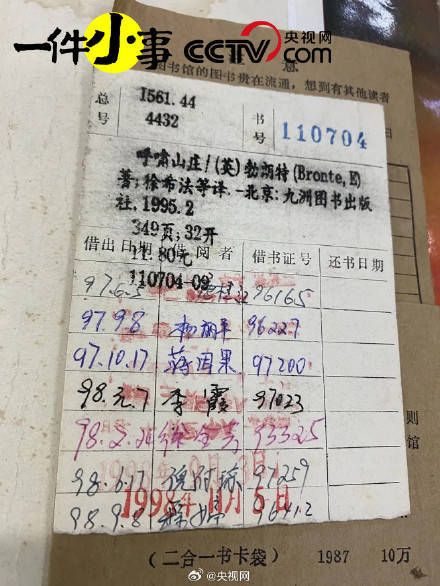 一件小事 CCTV.com 央视网
注意
图书馆的图书贵在流通，想到有其他读者
总号 1561.44 4432 书号 110704
呼啸山庄/(英)勃朗特(Bronte,E)
著;徐希法等译.-北京:九洲图书出版
社.1995.2
349页;32开
11.80元
110704-09
借出日期 借阅者 借书证号 还书日期
97.6.5 96165
97.9.8 杨丽平 96227
97.10.17 蒋因果 97200
98.元.7 李霞 97023
98.2. 93325
98.6.17 97259
98.9.8 96412
1998年10月5日
则
馆
(二合一书卡袋) 1987 10万
@央视网